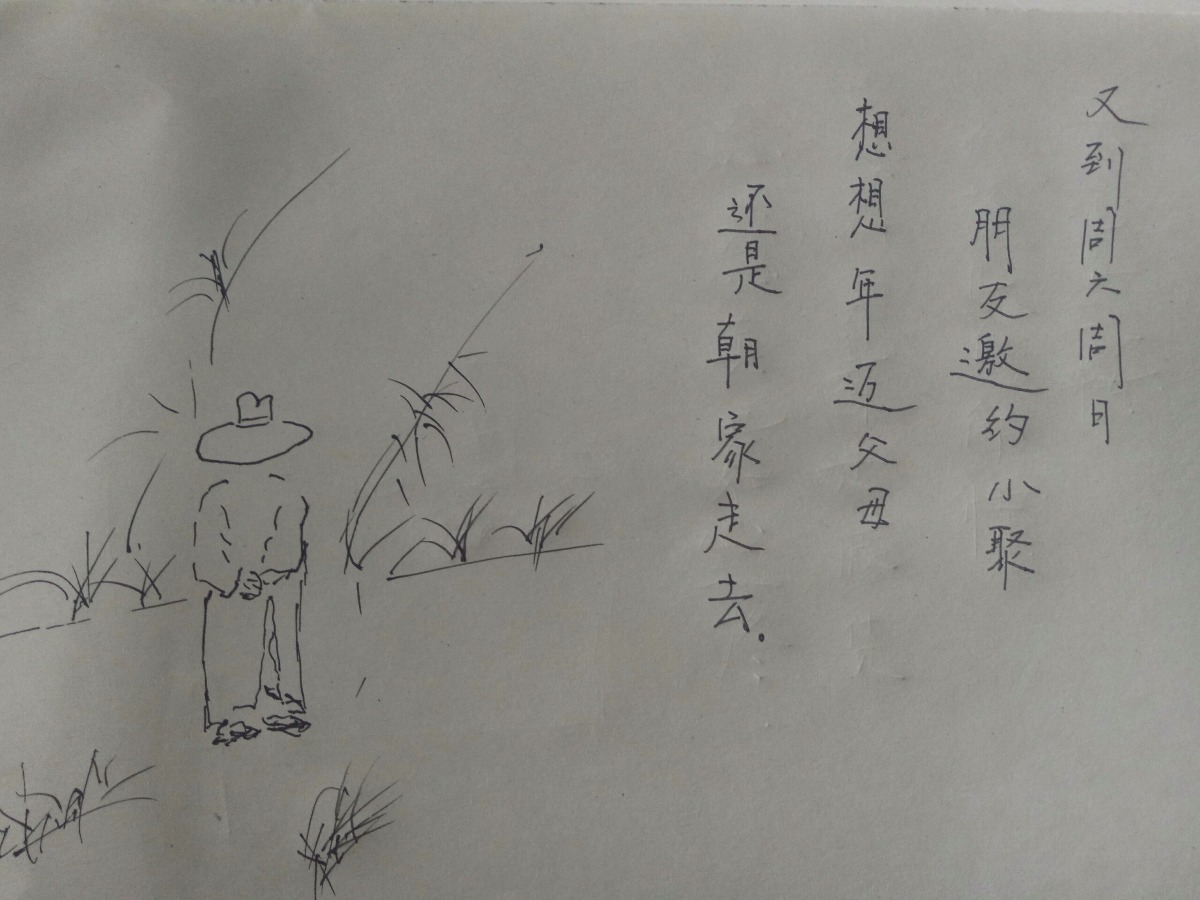 又到周六周日
朋友邀约小聚
想想年迈父母
还是朝家走去.